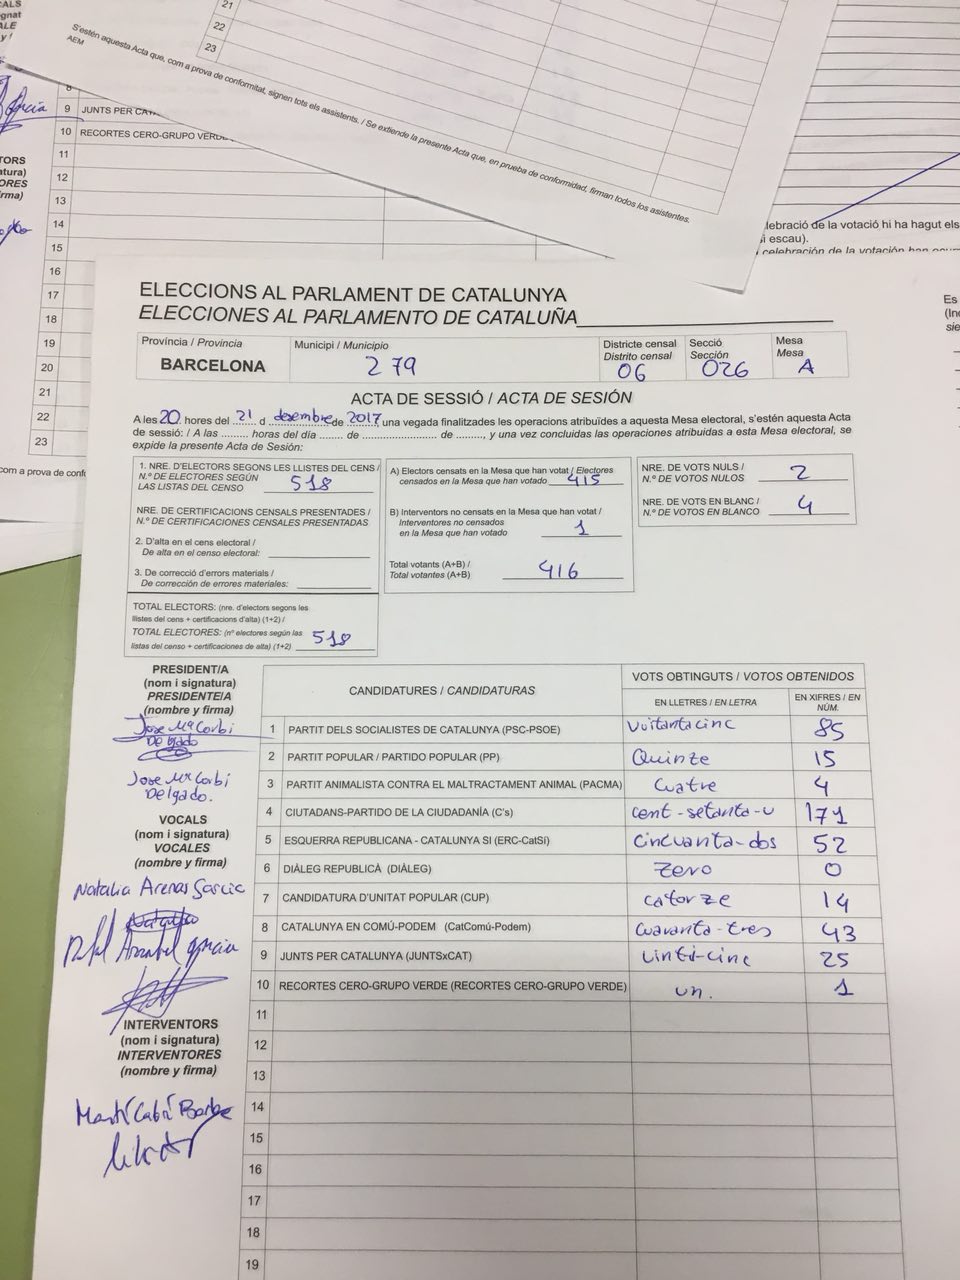 21
22
23
S'estén aquesta Acta que, com a prova de conformitat, signen tots els assistents. / Se extiende la presente Acta que, en prueba de conformidad, firman todos los asistentes.
AEM
9 JUNTS PER CATA
10 RECORTES CERO-GRUPO VERDE
11
12
13
14
15
16
17
18
19
20
21
22
23
com a prova de conf
lebració de la votació hi ha hagut els
i escau).
celebración de la votación han
Es
(In
sie
ELECCIONS AL PARLAMENT DE CATALUNYA
ELECCIONES AL PARLAMENTO DE CATALUÑA
Província / Provincia
BARCELONA
Municipi / Municipio
279
Districte censal
Distrito censal
06
Secció
Sección
026
Mesa
Mesa
A
ACTA DE SESSIÓ / ACTA DE SESIÓN
A les 20 hores del 21 d desembre de 2017 una vegada finalitzades les operacions atribuïdes a aquesta Mesa electoral, s'estén aquesta Acta
de sessió: / A las ......... horas del día ....... de .................... de ........, y una vez concluidas las operaciones atribuidas a esta Mesa electoral, se
expide la presente Acta de Sesión:
1. NRE. D'ELECTORS SEGONS LES LLISTES DEL CENS /
N.º DE ELECTORES SEGÚN
LAS LISTAS DEL CENSO 518
NRE. DE CERTIFICACIONS CENSALS PRESENTADES /
N.º DE CERTIFICACIONES CENSALES PRESENTADAS
2. D'alta en el cens electoral /
De alta en el censo electoral:
3. De correcció d'errors materials /
De corrección de errores materiales:
TOTAL ELECTORS: (nre. d'electors segons les
llistes del cens + certificacions d'alta) (1+2) /
TOTAL ELECTORES: (nº electores según las
listas del censo + certificaciones de alta) (1+2) 518
A) Electors censats en la Mesa que han votat / Electores
censados en la Mesa que han votado 415
B) Interventors no censats en la Mesa que han votat /
Interventores no censados
en la Mesa que han votado 1
Total votants (A+B) /
Total votantes (A+B) 416
NRE. DE VOTS NULS /
N.º DE VOTOS NULOS 2
NRE. DE VOTS EN BLANC /
N.º DE VOTOS EN BLANCO 4
PRESIDENT/A
(nom i signatura)
PRESIDENTE/A
(nombre y firma)
Jose Mª Corbi
Delgado
Jose Mª Corbi
Delgado.
VOCALS
(nom i signatura)
VOCALES
(nombre y firma)
Natalia Arenas Garcia
INTERVENTORS
(nom i signatura)
INTERVENTORES
(nombre y firma)
CANDIDATURES / CANDIDATURAS
VOTS OBTINGUTS / VOTOS OBTENIDOS
EN LLETRES / EN LETRA
EN XIFRES / EN NÚM.
1 PARTIT DELS SOCIALISTES DE CATALUNYA (PSC-PSOE) Vuitanta cinc 85
2 PARTIT POPULAR / PARTIDO POPULAR (PP) Quinze 15
3 PARTIT ANIMALISTA CONTRA EL MALTRACTAMENT ANIMAL (PACMA) Cuatre 4
4 CIUTADANS-PARTIDO DE LA CIUDADANÍA (C's) cent-setanta-u 171
5 ESQUERRA REPUBLICANA - CATALUNYA SI (ERC-CatSi) Cincuanta-dos 52
6 DIÀLEG REPUBLICÀ (DIÀLEG) Zero 0
7 CANDIDATURA D'UNITAT POPULAR (CUP) catorze 14
8 CATALUNYA EN COMÚ-PODEM (CatComú-Podem) Cuaranta-tres 43
9 JUNTS PER CATALUNYA (JUNTSxCAT) Vinti-cinc 25
10 RECORTES CERO-GRUPO VERDE (RECORTES CERO-GRUPO VERDE) un. 1
11
12
13
14
15
16
17
18
19